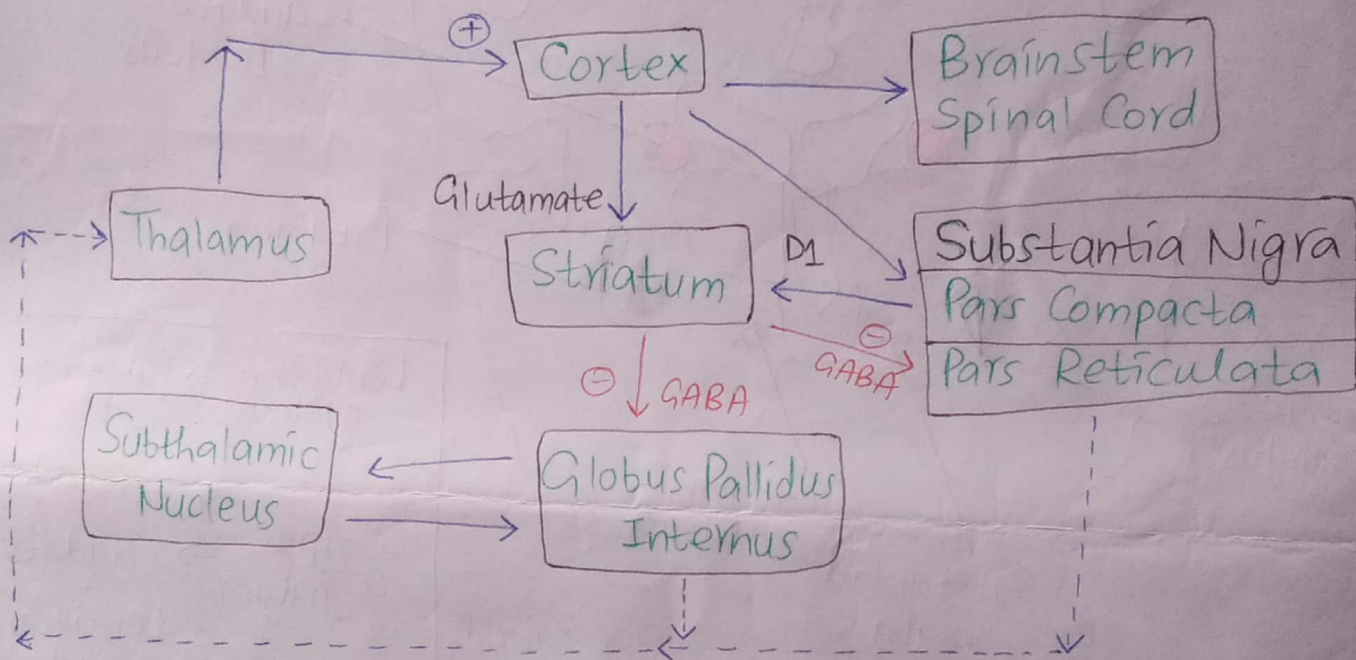 ⊕
Cortex
Brainstem
Spinal Cord
Glutamate
Thalamus
Striatum
D1
Substantia Nigra
Pars Compacta
Pars Reticulata
⊖
GABA
⊖
GABA
Subthalamic
Nucleus
Globus Pallidus
Internus